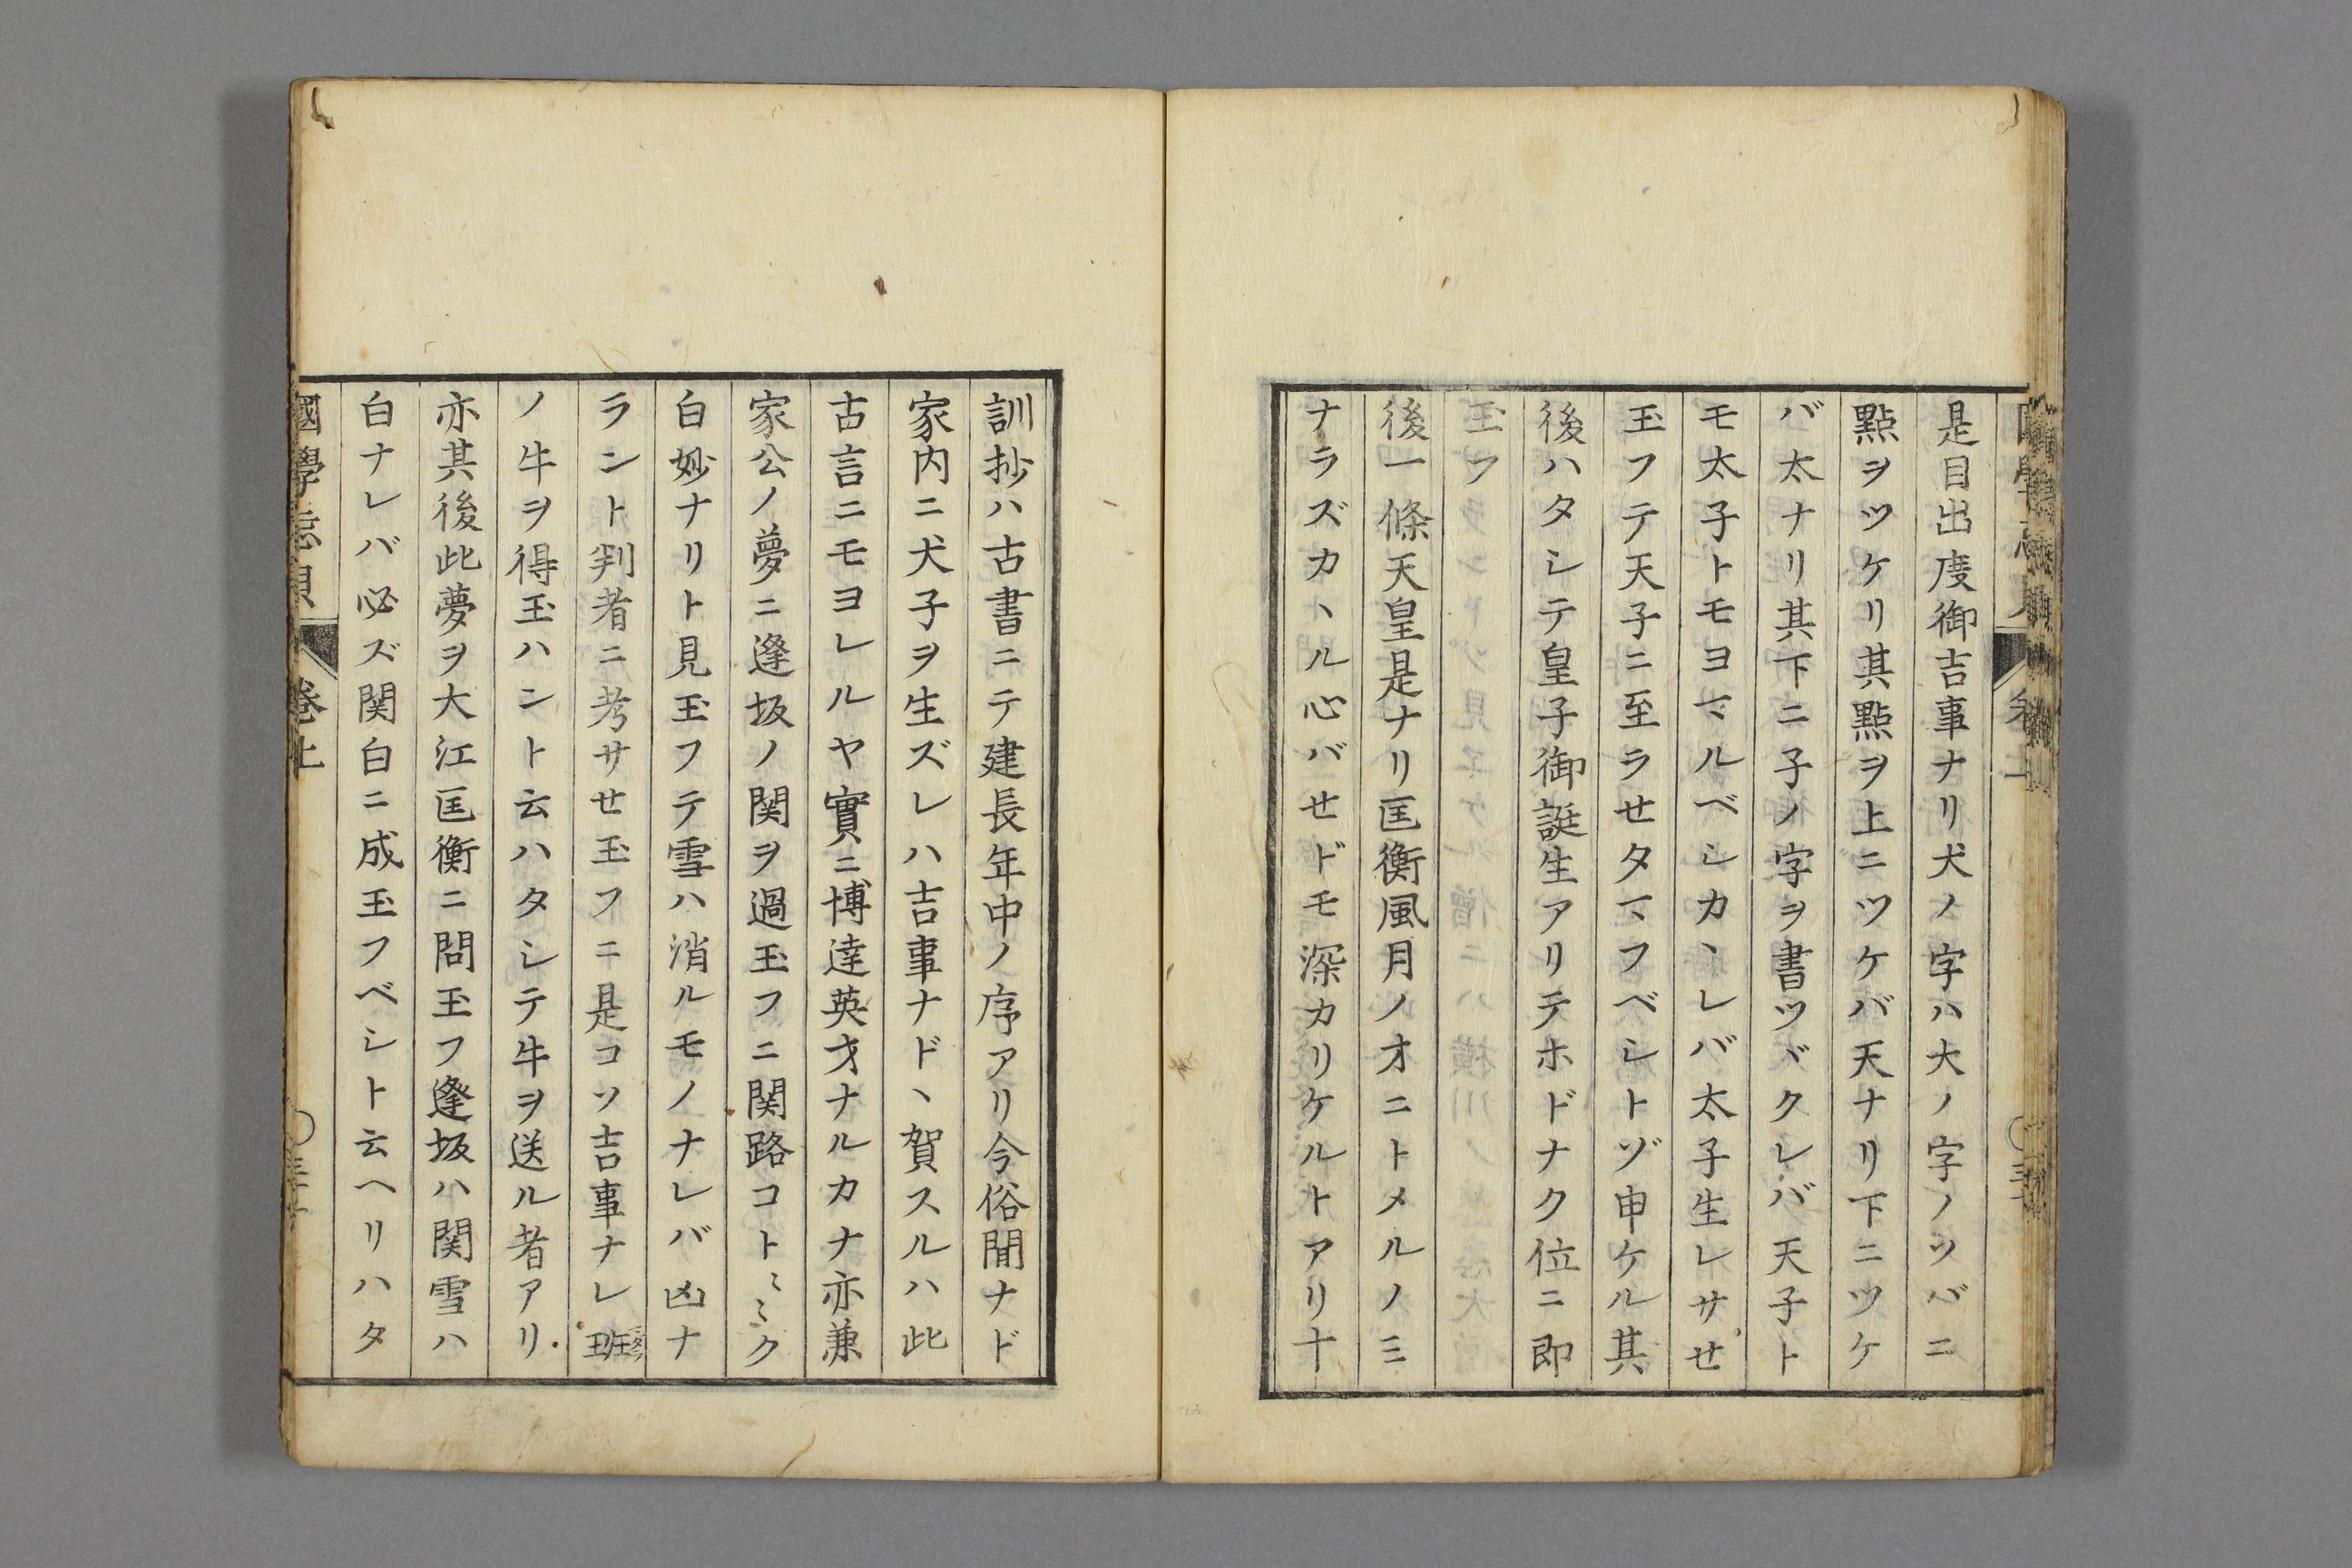 是目出度御吉事ナリ犬ノ字ハ大ノ字ノソバニ
點ヲツケリ其點ヲ上ニツケバ天ナリ下ニツケ
バ太ナリ其下ニ子ノ字ヲ書ツヾクレバ天子ト
モ太子トモヨマルベシカヽレバ太子生レサセ
玉フテ天子ニ至ラセタマフベシトゾ申ケル其
後ハタシテ皇子御誕生アリテホドナク位ニ即
玉フ
後一條天皇是ナリ匡衡風月ノオニトメルノミ
ナラズカヽル心バセドモ深カリケルトアリ十
訓抄ハ古書ニテ建長年中ノ序アリ今俗間ナド
家内ニ犬子ヲ生ズレハ吉事ナドヽ賀スルハ此
古言ニモヨレルヤ實ニ博達英才ナルカナ亦兼
家公ノ夢ニ逢坂ノ関ヲ過玉フニ関路コト〳〵ク
白妙ナリト見玉フテ雪ハ消ルモノナレバ凶ナ
ラント判者ニ考サセ玉フニ是コソ吉事ナレ班
ノ牛ヲ得玉ハント云ハタシテ牛ヲ送ル者アリ
亦其後此夢ヲ大江匡衡ニ問玉フ逢坂ハ関雪ハ
白ナレバ必ズ関白ニ成玉フベシト云ヘリハタ
國學忘貝 卷上